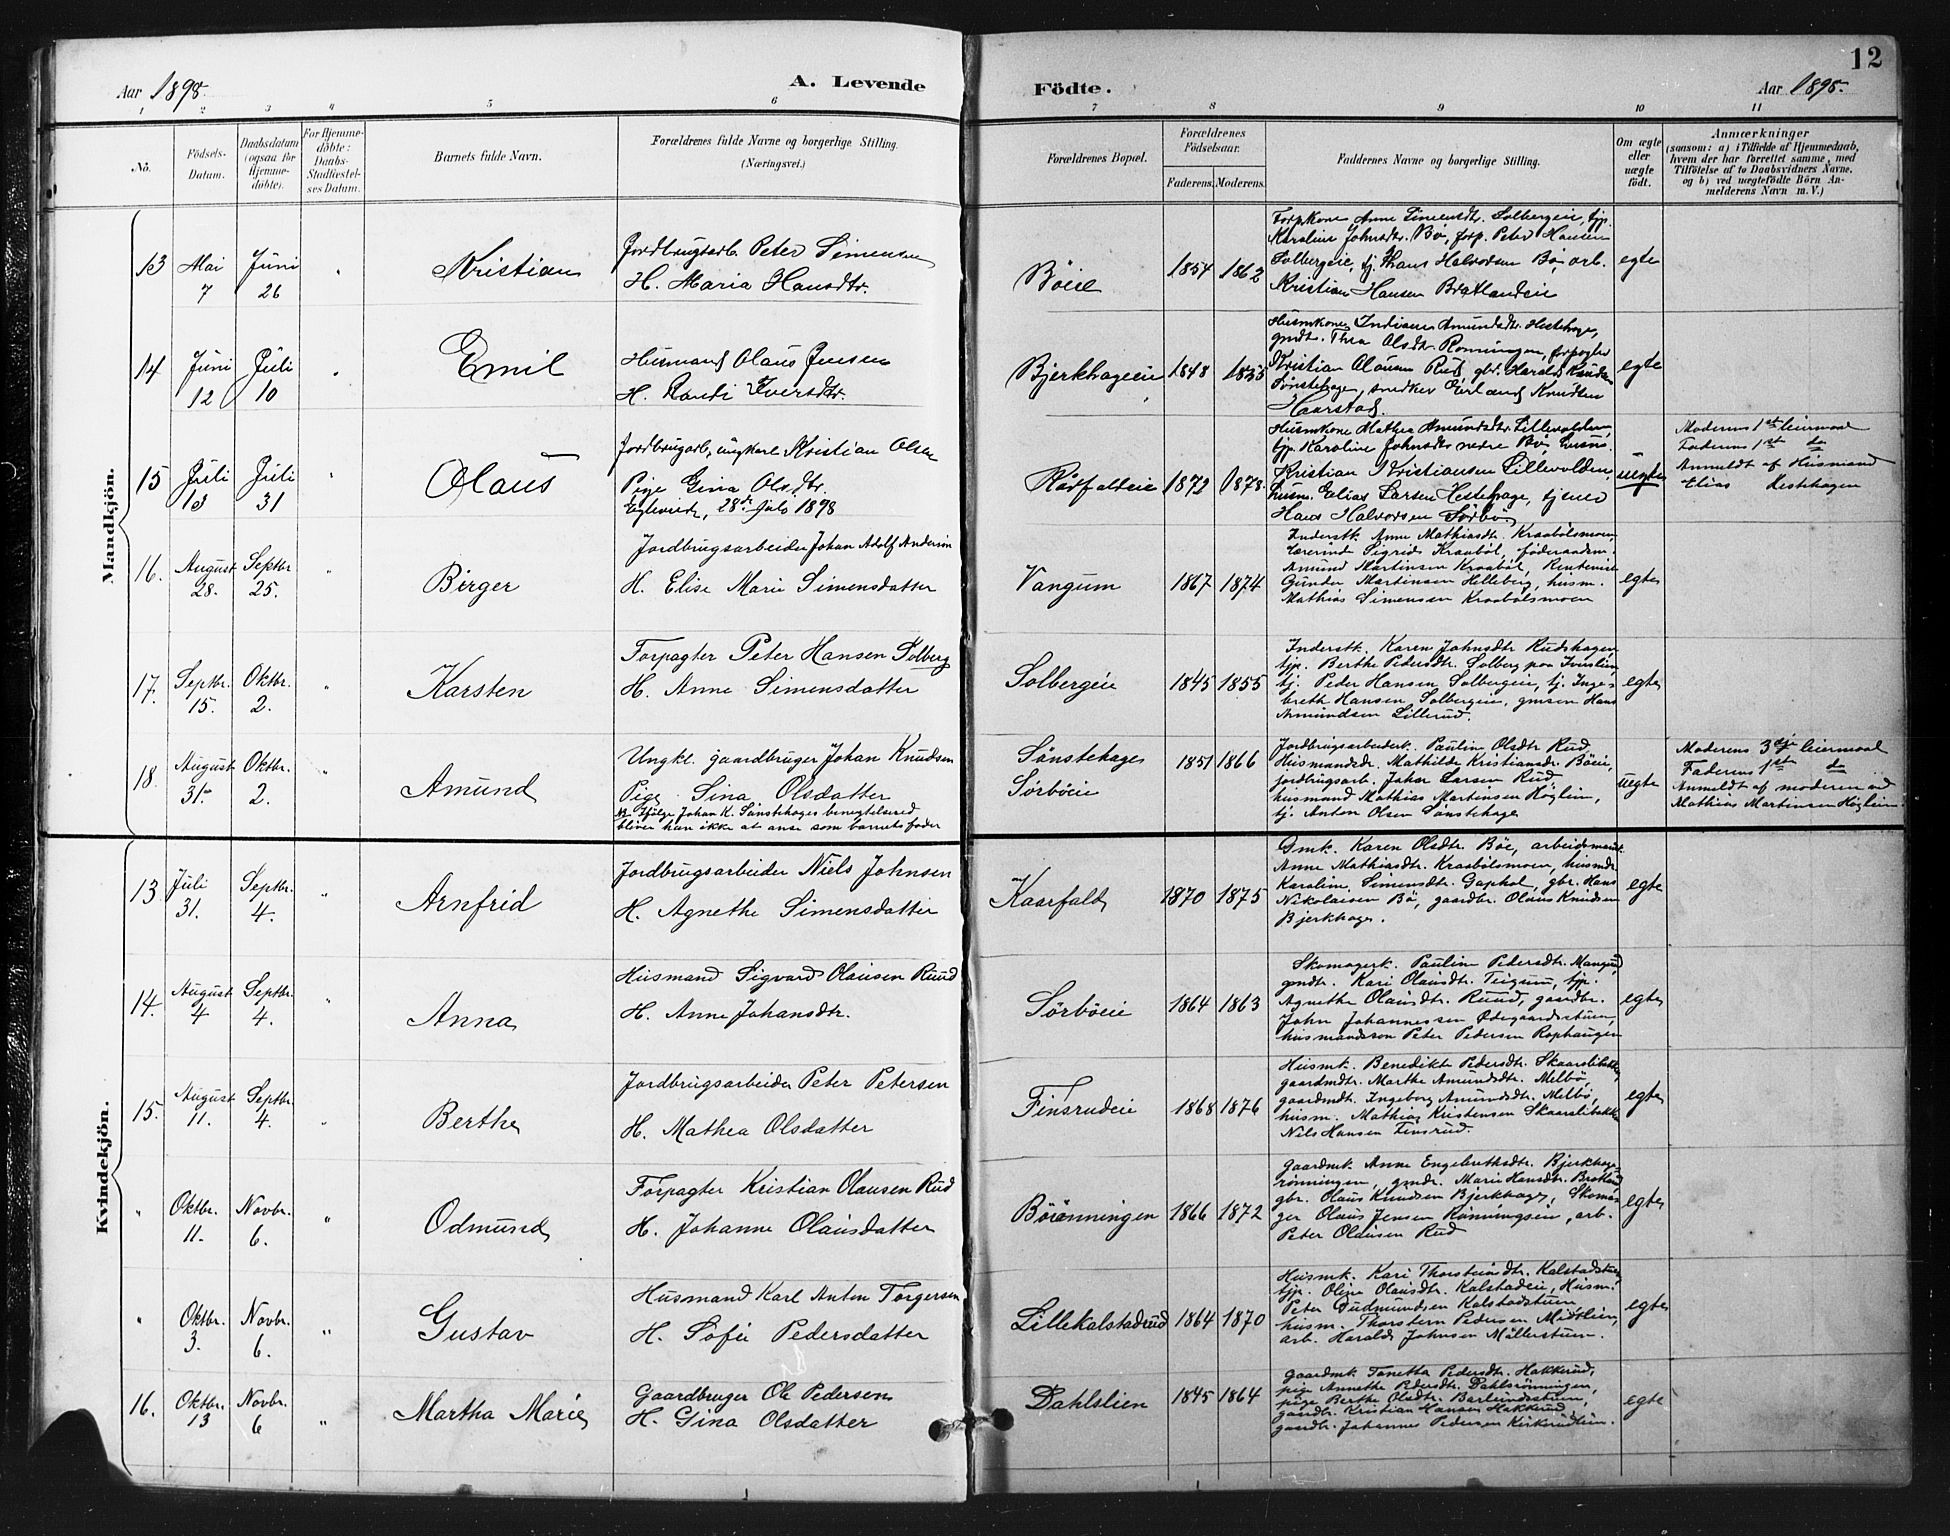 12
Aar 1898. A. Levende Födte. Aar 1898.
1 2 3 4 5 6 7 8 9 10 11
No. Födsels-Datum. Daabsdatum (ogsaa for Hjemme-döbte). For Hjemme-döbte: Daabs-Stadfæstel-ses Datum. Barnets fulde Navn. Forældrenes fulde Navne og borgerlige Stilling. (Næringsvei.) Forældrenes Bopæl. Forældrenes Födselsaar. Faderens. Moderens. Faddernes Navne og borgerlige Stilling. Om ægte eller uægte födt. Anmærkninger (saasom: a) i Tilfælde af Hjemmedaab, hvem der har forrettet samme, med Tilföielse af to Daabsvidners Navne, og b) ved uægtefödte Börn An-melderens Navn m. V.)
Mandkjön.
13 Mai 7 Juni 26 " Kristian
Jordbrugsarb. Peter Simensen
H. Maria Hansdtr.
Böeie 1854 1862
Forpkone Anne Simensdtr. Solbergeie, tjp.
Karoline Johnsdtr. Bö, forp. Peter Hansen
Solbergeie, tj. Hans Halvorsen Bö arb.
Kristian Hansen Bratlandeie
egte
14 Juni 12 Juli 10 " Emil
Husmand Olaus Jensen
H. Randi Iversdtr.
Bjerkhageeie 1848 1855
Husmkone Indiane Amundsdtr. Hestehage,
gmdt. Thea Olsdt. Rönningen, forpagter
Kristian Olausen Rud, gbr. Harald Knudsen
Sönstehage, snedker Erland Knudsen
Haarstad.
egte
15 Juli 13 Juli 31 " Olaus
Jordbrugarb, ungkarl Kristian Olsen
Pige Gina Olsdtr.
Egteviede, 28de Juli 1898
Kårfaldeie 1872 1878.
Husmkone Mathea Amundsdtr. Lillevolden,
tjp. Karoline Johnsdtr nedre Bö, husm.
Kristian Kristiansen Lillevolden,
husm. Elias Larsen Hestehage, tjener
Hans Halvorsen Sörbö
uegte
Moderens 1ste leiermaal
Faderens 1ste do
Anmeldt af Husmand
Elias Hestehagen
16. August 28. Septbr 25. " Birger
Jordbrugsarbeider Johan Adolf Andersen
H. Elise Marie Simensdatter
Vangum 1867 1874
Inderstk. Anne Mathiasdtr. Kraabölsmoen,
Lærerinde Sigrid Kraaböl, föderaadsm.
Amund Martinsen Kraaböl, Rentenist
Gunder Martinsen Helleberg, husm.
Mathias Simensen Kraabölsmoen
egte
17. Septbr. 15. Oktbr. 2. " Karsten
Forpagter Peter Hansen Solberg
H. Anne Simensdatter
Solbergeie 1845 1855
Inderstk. Karen Johnsdtr Rudshagen,
tjp. Berthe Pedersdtr. Solberg paa Iverslien,
tj. Peder Hansen Solbergeie, tj. Inge-
breth Hansen Solbergeie, gmsön Hans
Amundsen Lillerud.
egte
18. August 31. Oktbr. 2. " Amund
Ungkl. gaardbruger Johan Knudsen
Pige Sina Olsdatter
Nb. Ifölge Johan K. Sönstehages benegtelsesed
bliver han ikke at anse som barnets fader
Sönstehage
Sörböeie
1851 1866
Jordbrugsarbeiderk. Pauline Olsdtr Rud,
Husmandsdr. Mathilde Kristiansdr. Böeie,
jordbrugsarb. Johan Larsen Rud,
husmand Mathias Martinsen Höglien,
tj. Anton Olsen Sönstehage
uegte
Moderens 3dje leiermaal
Faderens 1ste do
Anmeldt af moderen ved
Mathias Martinsen Höglien
Kvindekjön.
13 Juli 31. Septbr. 4. " Arnfrid
Jordbrugsarbeider Niels Johnsen
H. Agnethe Simensdatter
Kaarfald 1870 1875
Gmk. Karen Olsdtr. Böe, arbeidsmandk.
Anne Mathiasdtr. Kraabölsmoen, husmdr.
Karoline Simensdtr. Gaphol, gbr. Hans
Nikolaisen Bö, gaardbr. Olaus Knudsen
Bjerkhage.
egte
14. August 4 Septbr. 4. " Anna
Husmand Sigvard Olausen Ruud
H. Anne Johansdtr.
Sörböeie 1864 1863
Skomagerk. Pauline Pedersdtr. Mangrud,
gmdt. Kari Olausdtr. Teigum, tjp.
Agnethe Olausdtr. Ruud, gaardbr.
John Johannessen Ödegaardsstuen,
husmandssön Peter Pedersen Rophaugen
egte
15. August 11. Septbr. 4. " Berthe
Jordbrugsarbeider Peter Petersen
H. Mathea Olsdatter
Finsrudeie 1868 1876
Husmk. Benedikte Pedersdtr. Skaarslibakke,
gaardmdtr. Marthe Amundsdtr. Melbö,
gaardmdt. Ingeborg Amundsdtr. Melbö,
husm. Mathias Kristensen Skaarslibakke,
Nils Hansen Finsrud.
egte
" Oktbr. 11. Novbr. 6. " Odmund
Forpagter Kristian Olausen Rud
H. Johanne Olausdatter
Börönningen 1866 1872
Gaardmk. Anne Engebrethsdtr. Bjerkhage-
rönningen, gmdr. Marie Hansdtr. Bratland
gbr. Olaus Knudsen Bjerkhage, Skoma-
ger Olaus Jensen Rönningseie, arb.
Peter Olausen Rud
egte
" Oktbr. 3. Novbr. 6. " Gustav
Husmand Karl Anton Torgersen
H. Sofie Pedersdatter
Lillekalstadrud 1864 1870
Husmk. Kari Thorsteinsdtr. Kalstadstuen
tjp. Oline Olausdtr. Kalstadeie, Husm.
Peter Gudmundsen Kalstadstuen,
husm. Thorstein Pedersen Midtlien,
arb. Harald Johnsen Möllerstuen.
egte
16. Oktbr. 13 Novbr. 6 " Martha Marie
Gaardbruger Ole Pedersen
H. Gina Olsdatter
Dahlslien 1845 1864
Gaardmk. Tanetta Pedersdtr. Hakkerud,
pige Annethe Pedersdtr. Dahlsrönningen,
pige Berthe Olsdtr.
gaardbr. Kristian Hansen Hakkerud
gaardbr. Johannes Pedersen Kirkerudlien.
egte